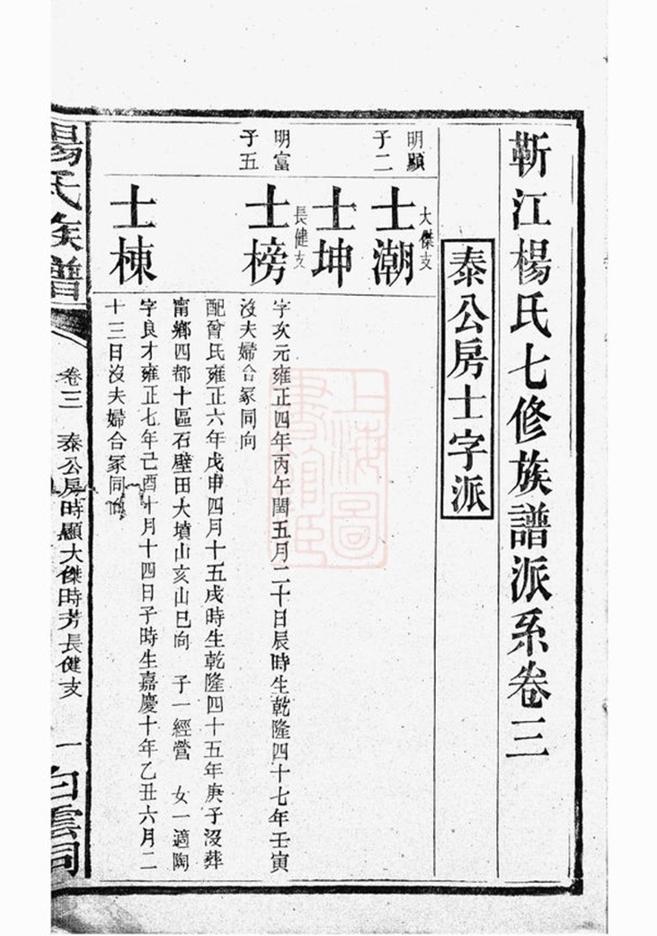 靳江楊氏七修族譜派系卷三
泰公房士字派
大傑支
明顯
子二
士潮
士坤
長健支
明富
子五
士榜
字次元雍正四年丙午閏五月二十日辰時生乾隆四十七年壬寅
沒夫婦合冢同向
配曾氏雍正六年戊申四月十五戌時生乾隆四十五年庚子沒葬
甯鄉四都十區石壁田大墳山亥山巳向 子一經營 女一適陶
士棟
字良才雍正七年己酉十月十四日子時生嘉慶十年乙丑六月二
十三日沒夫婦合冢同向
楊氏族譜
卷三 泰公房時顯大傑時芳長健支
一
白雲洞
上海圖書館藏